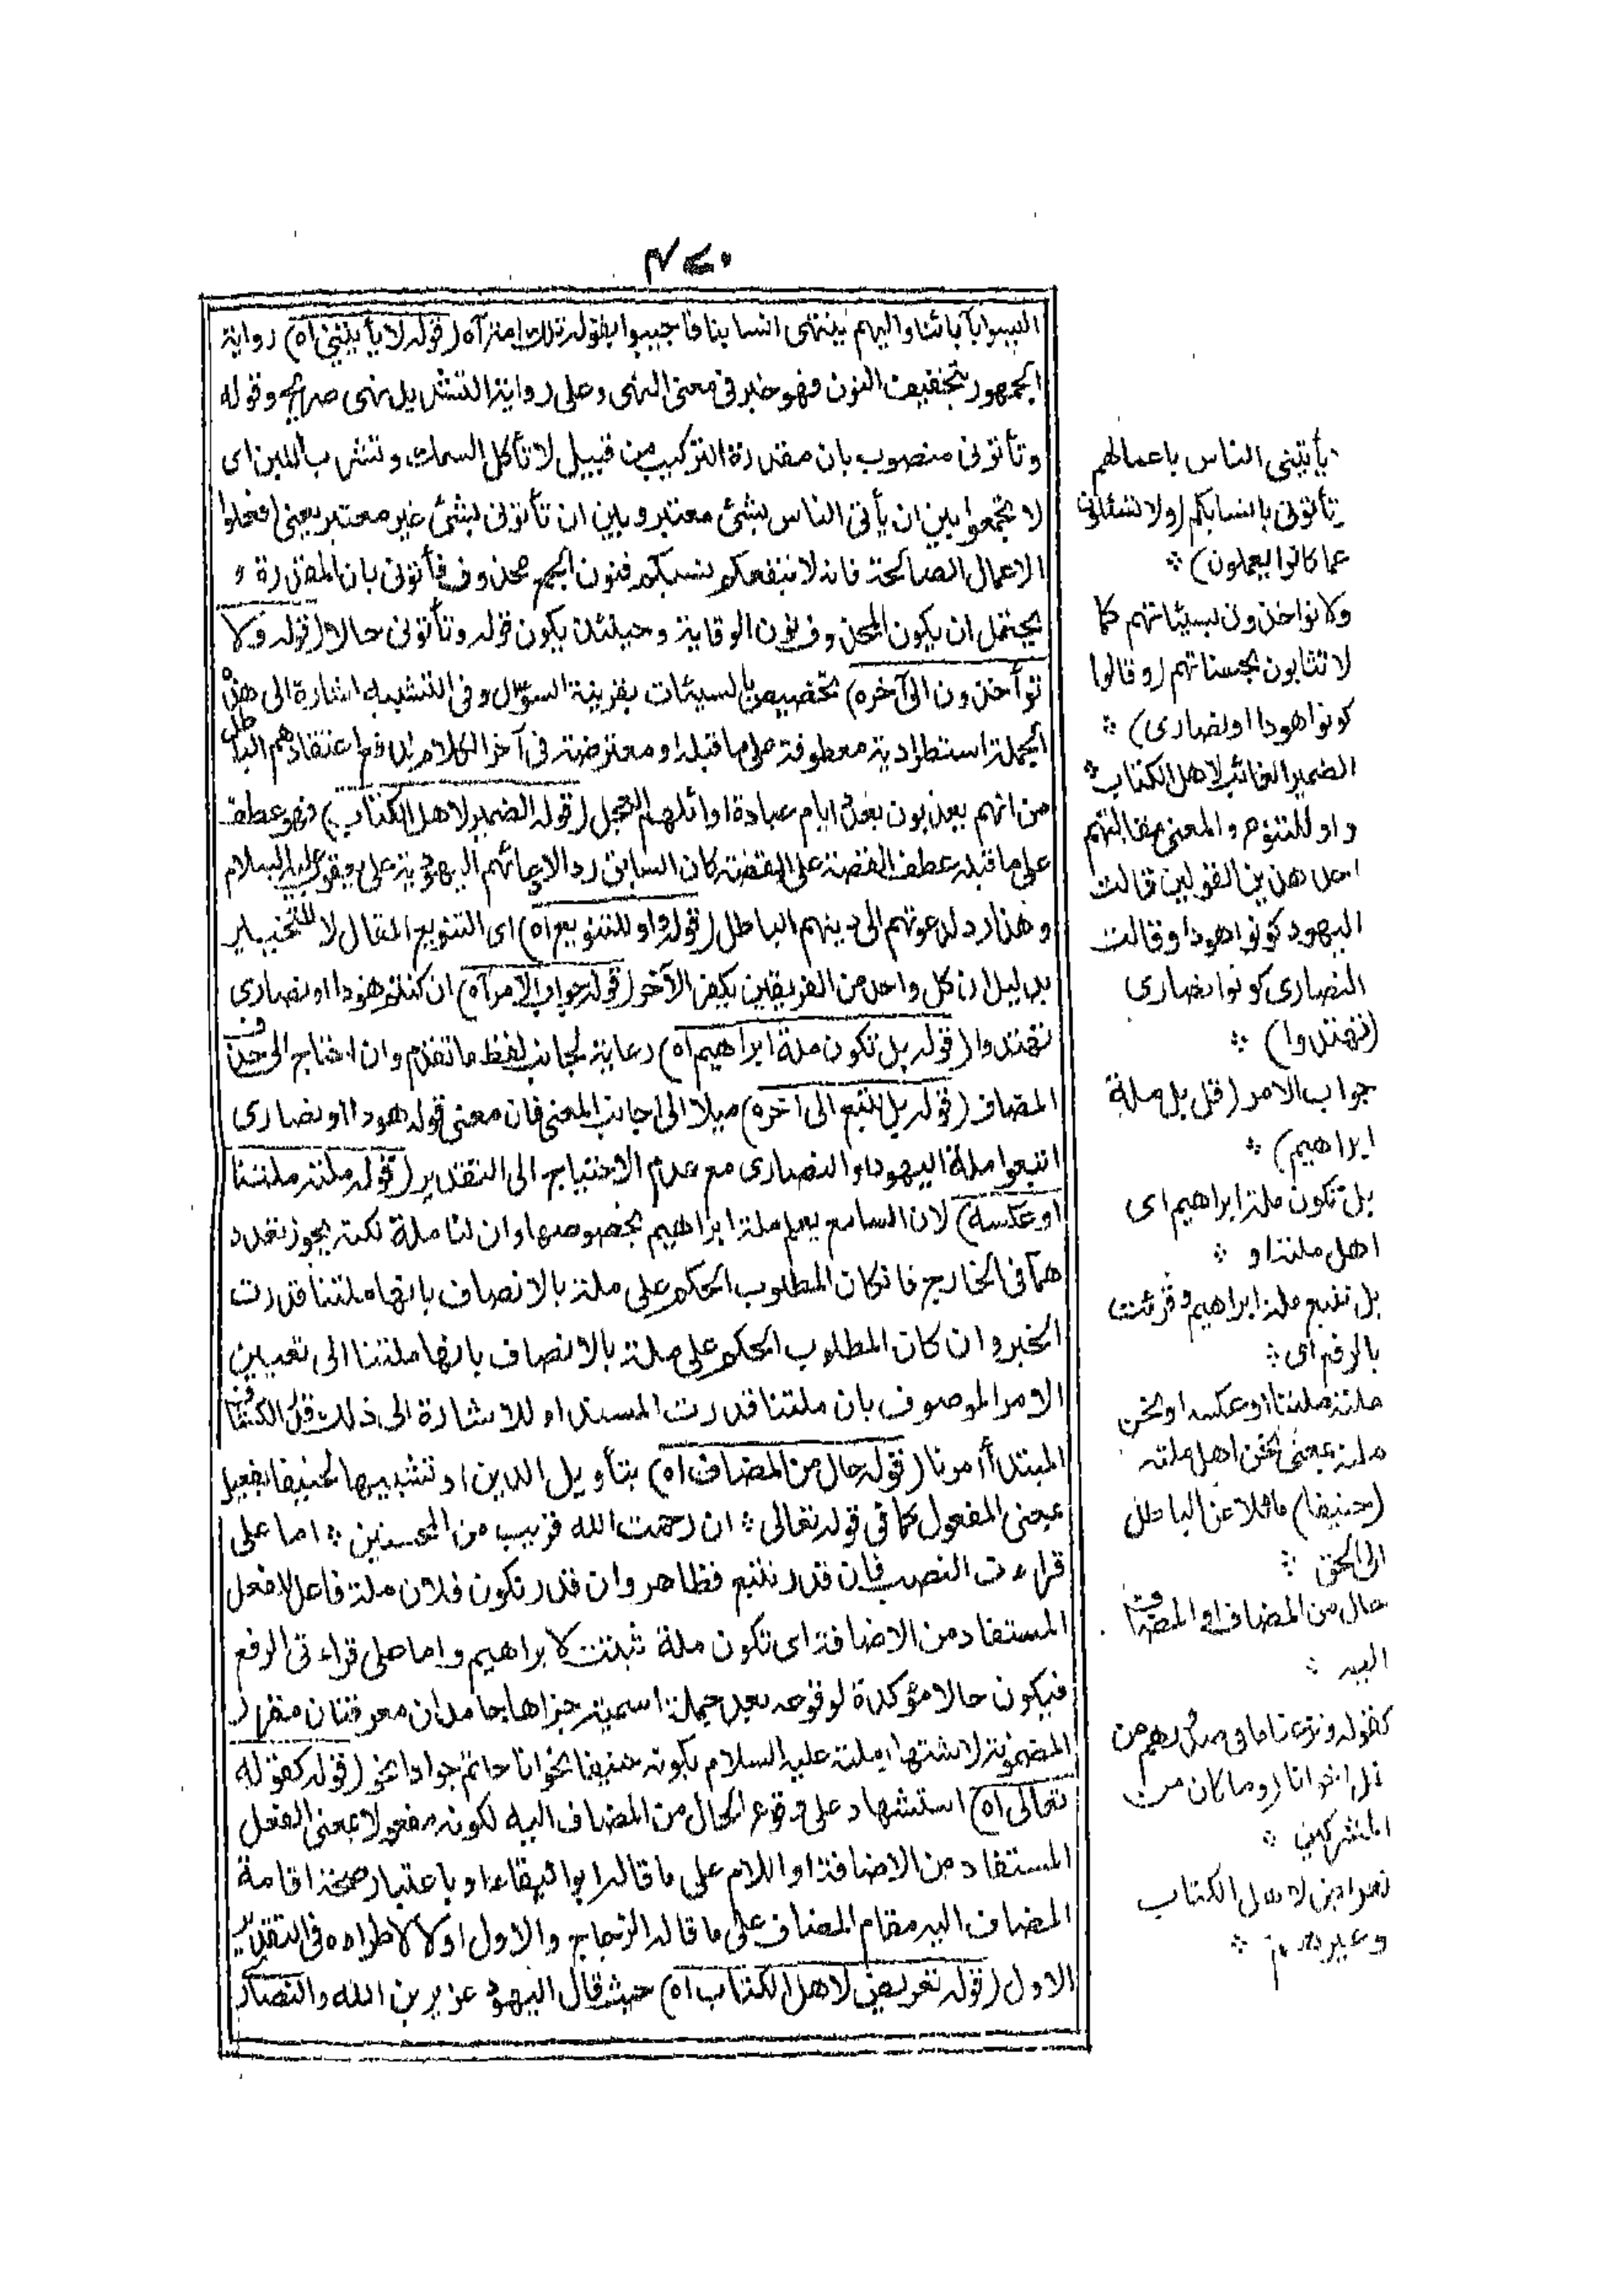 ٤٧٠
اليسوا بآبائنا واليهم ينتهى انسابنا فاجيبوا بقوله تلك امة آه (قوله لا يأتينى اه) رواية
الجمهور بتخفيف النون فهو خبر فى معنى النهى وعلى رواية التشديد نهى صريح وقوله
وتأتونى منصوب بان مقدرة التركيب من قبيل لا تأكل السمك وتشرب اللبن اى
لا تجمعوا بين ان يأتى الناس بشئ معتبر وبين ان تأتونى بشئ غير معتبر يعنى افعلوا
الاعمال الصالحة فانه لا ينفعكم نسبكم فنون الجمع محذوف فى تأتونى بان المقدرة و
يحتمل ان يكون المحذوف نون الوقاية وحينئذ يكون قوله وتأتونى حالا (قوله ولا
تؤاخذون الى آخره) تخصيص بالسيئات بقرينة السؤال وفى التشبيه اشارة الى هذه
الجملة استطرادية معطوفة على ما قبله او معترضة فى آخر الكلام اعتقادهم الباطل
من انهم يعذبون بعدة ايام عبادة اوائلهم العجل (قوله الضمير لاهل الكتاب) فهو عطف
على ما قبله عطف القصة على القصة كان السابق ردا لادعائهم اليهودية على يعقوب عليه السلام
وهذا رد لدعوتهم الى دينهم الباطل (قوله واو للتنويع اه) اى التنويع المقال لا للتخيير
بدليل ان كل واحد من الفريقين يكفر الآخر (قوله جواب الامر آه) ان كنتم هودا او نصارى
تهتدوا (قوله بل تكون ملة ابراهيم اه) رعاية لجانب لفظ ما تقدم وان احتاج الى حذف
المضاف (قوله بل نتبع الى آخره) ميلا الى جانب المعنى فان معنى قوله هودا او نصارى
اتبعوا ملة اليهود او النصارى مع عدم الاحتياج الى التقدير (قوله ملته ملتنا
او عكسه) لان السامع يعلم ملة ابراهيم بخصوصها وان لنا ملة لكنه يجوز تعدد
هما فى الخارج فان كان المطلوب الحكم على ملته بالاتصاف بانها ملتنا قدرت
الخبر وان كان المطلوب الحكم على ملته بالاتصاف بانها ملتنا الى تعيين
الامر الموصوف بان ملتنا قدرت المسند او للاشارة الى ذلك قال الكشاف
المبتدأ أمرنا (قوله حال من المضاف اه) بتأويل الدين او تشبيها لحنيفا بفعيل
بمعنى المفعول كما فى قوله تعالى ؞ ان رحمت الله قريب من المحسنين ؞ اما على
قراءت النصب فان قدر نتبع فظاهر وان قدر تكون فلان ملة فاعل لافعل
المستفاد من الاضافة اى تكون ملة ثبتت لابراهيم واما على قراءتى الرفع
فيكون حالا مؤكدة لوقوعه بعد جملة اسمية جزاها جامدان معرفتان مقرر
المضمونة لاشتهار ملته عليه السلام بكونه حنيفا نحو انا حاتم جوادا نحو (قوله كقوله
تعالى اه) استشهاد على وقوع الحال من المضاف اليه لكونه مفعولا بمعنى الفعل
المستفاد من الاضافة او اللام على ما قاله ابو البقاء او باعتبار صحة اقامة
المضاف اليه مقام المضاف على ما قاله الزجاج والاول اولا لاطراده فى التقدير
الاول (قوله تعريض لاهل الكتاب اه) حيث قال اليهود عزير بن الله والنصارى
يأتينى الناس باعمالهم
وتأتونى بانسابكم (ولا تسئلون
عما كانوا يعملون) ؞
ولا تؤاخذون بسيئاتهم كما
لا تثابون بحسناتهم (وقالوا
كونوا هودا او نصارى) ؞
الضمير الغائب لاهل الكتاب ؞
واو للتنويع والمعنى مقالتهم
احد هذين القولين قالت
اليهود كونوا هودا وقالت
النصارى كونوا نصارى
(تهتدوا) ؞
جواب الامر (قل بل ملة
ابراهيم) ؞
بل تكون ملة ابراهيم اى
اهل ملته او ؞
بل نتبع ملة ابراهيم وقرئت
بالرفع اى ؞
ملته ملتنا او عكسه او نحن
ملته بمعنى نحن اهل ملته
(حنيفا) مائلا عن الباطل
الى الحق ؞
حال من المضاف او المضاف
اليه ؞
كقوله ونزعنا ما فى صدورهم من
غل اخوانا (وما كان من
المشركين ؞
تعريض لاهل الكتاب
وغيرهم ؞